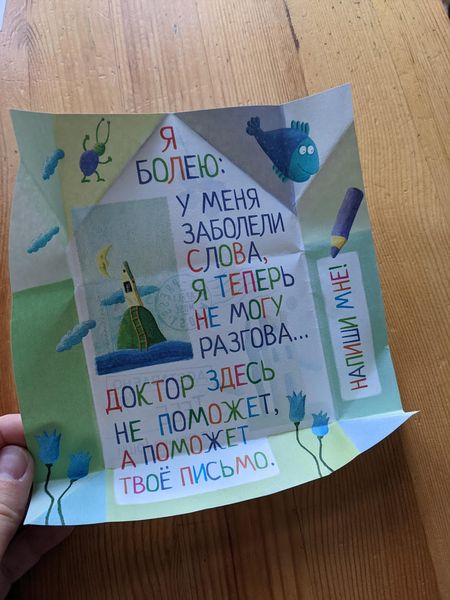 Я
БОЛЕЮ:
У МЕНЯ
ЗАБОЛЕЛИ
СЛОВА,
Я ТЕПЕРЬ
НЕ МОГУ
РАЗГОВА...
ДОКТОР ЗДЕСЬ
НЕ ПОМОЖЕТ,
А ПОМОЖЕТ
ТВОЁ ПИСЬМО.
НАПИШИ МНЕ!